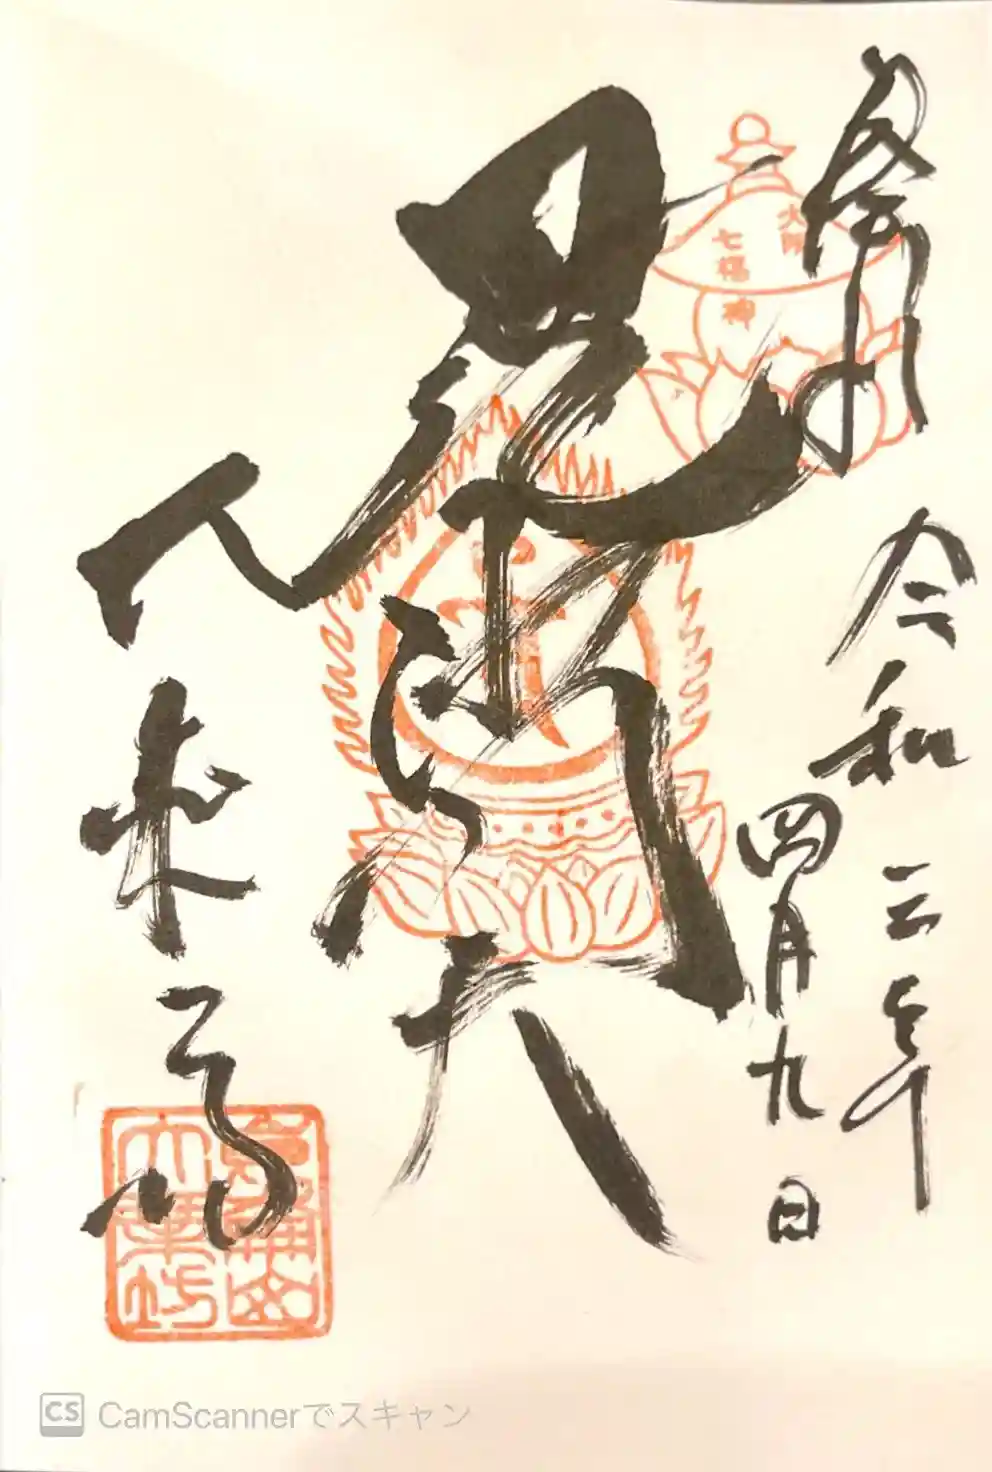 奉拝
大師
七福神
令和三年
四月九日
毘沙門天
CS CamScannerでスキャン